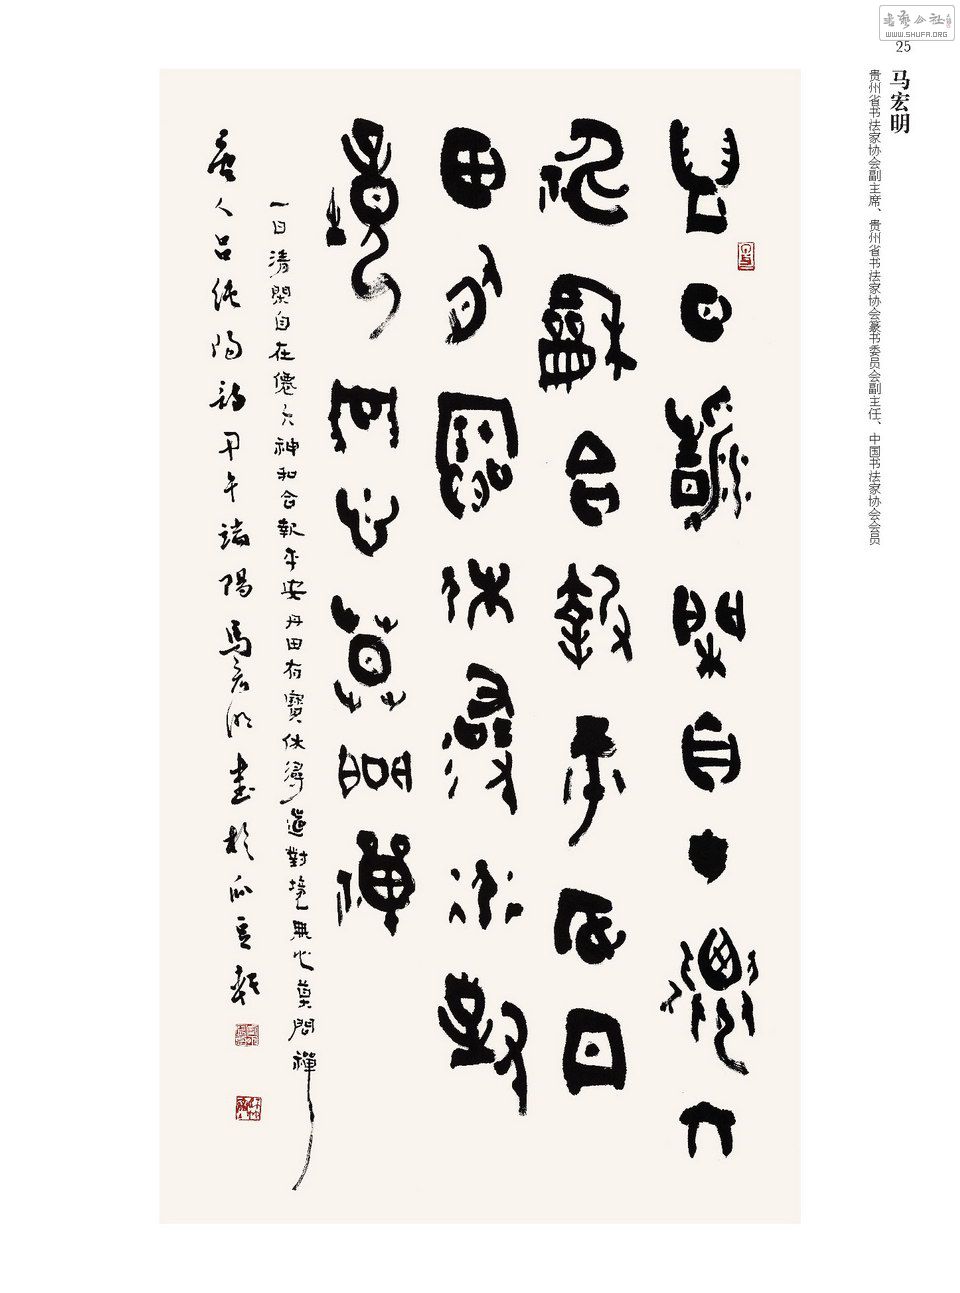 書藝公社
WWW.SHUFA.ORG
25
马宏明
贵州省书法家协会副主席、贵州省书法家协会篆书委员会副主任、中国书法家协会会员
一日清閑自在僊六
神龢合報平安丹
田有寶休尋道對
境無心莫問禪
一日清閑自在僊六神和合報平安丹田有寶休尋道對境無心莫問禪
唐人呂純陽詩甲午端陽馬宏明書於瓜豆軒